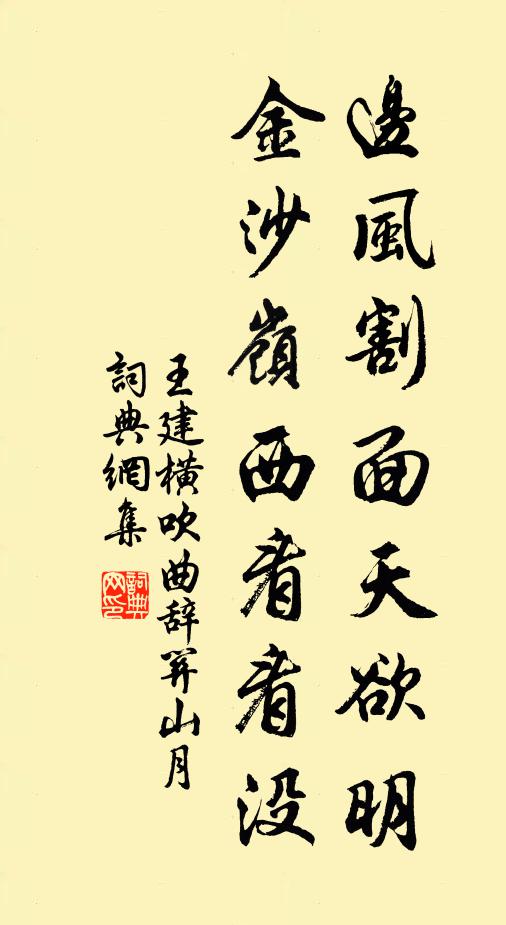 邊風割面天欲明
金沙嶺西看看沒
王建橫吹曲辞关山月
詞典網集
詞典网印